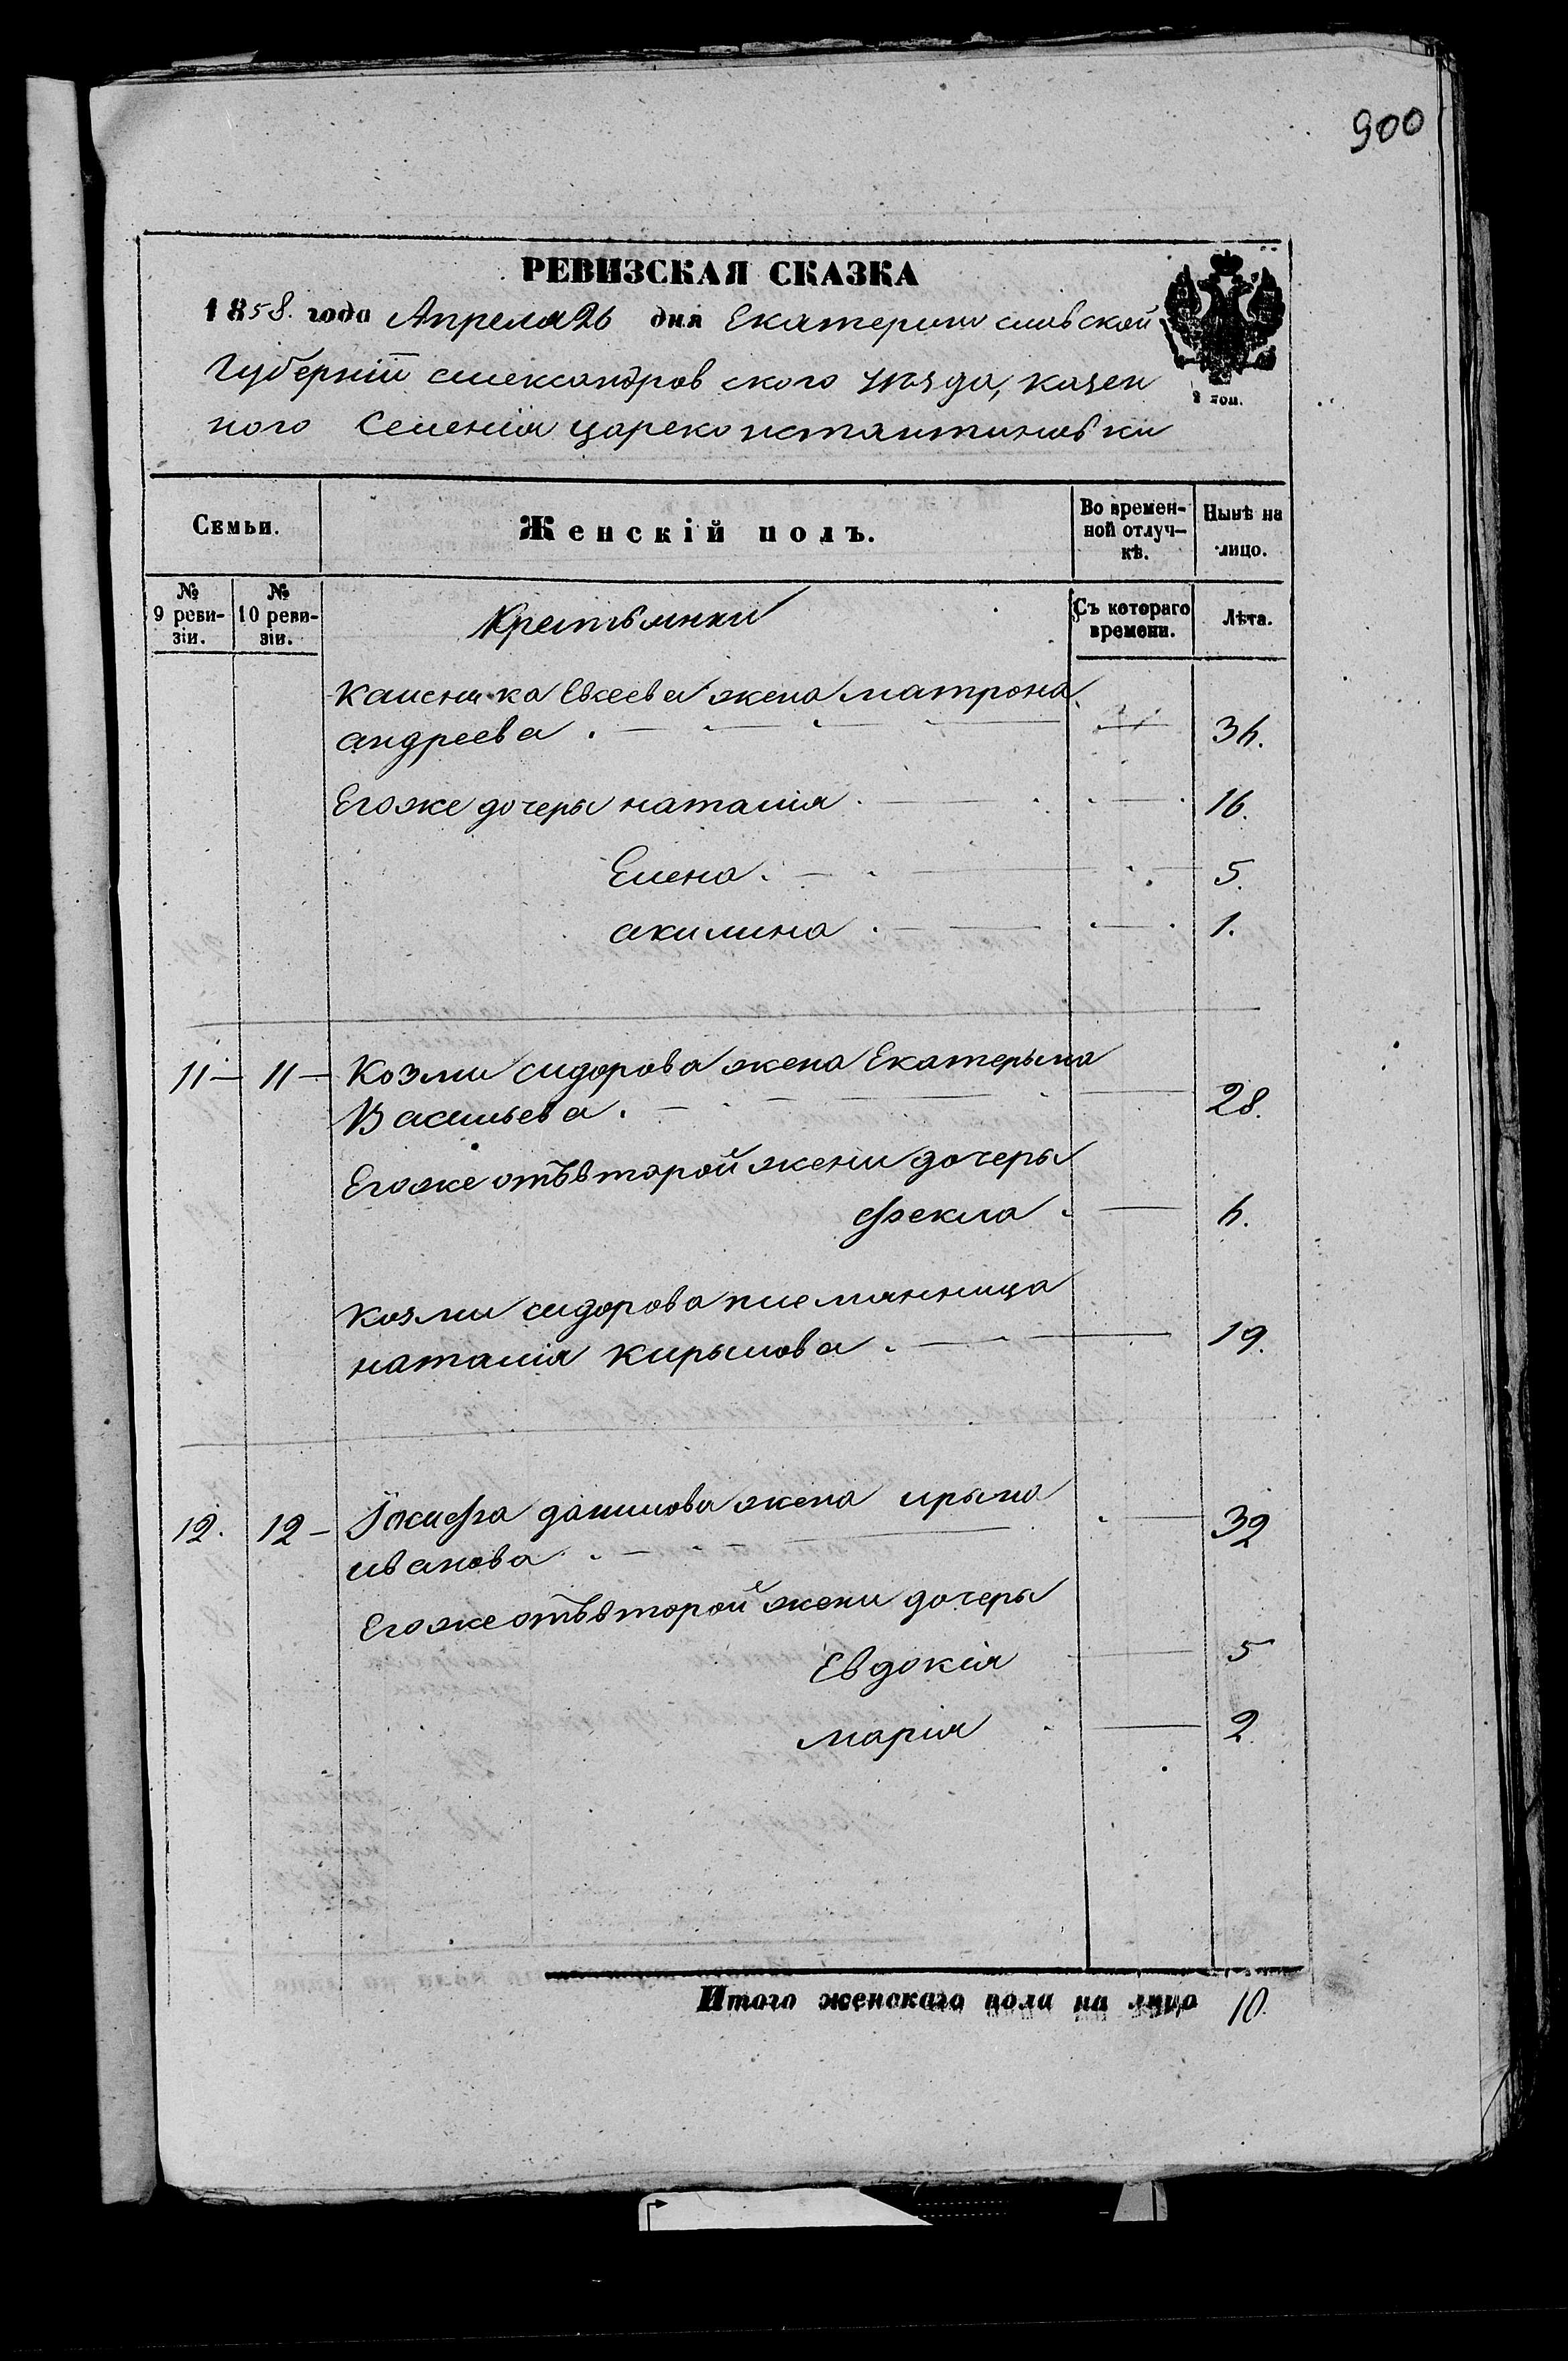 900
РЕВИЗСКАЯ СКАЗКА
1858. года Апреля 26 дня Екатеринославской
Губернiи александровского уѣзда, казен
ного Селенiя цареконстантиновки
2 коп.
Семьи.
Женскiй полъ.
Во времен-
ной отлуч-
кѣ.
Нынѣ на
лицо.
№
9 реви-
зiи.
№
10 реви-
зiи.
Крестьянки
Съ котораго
времени.
Лѣта.
Калсника Евсеева жена матрона
андреева . 36.
Его же дочеры наталiя . 16.
Елена . 5.
акилина . 1.
11 — 11 — Козми сидорова жена Екатерына
Васильева . 28.
Его же отъ второй жены дочеры
Фекла . 6.
Козми сидорова племянница
наталiя кирылова . 19.
12. 12 — Iосифа данилова жена ирына 32
иванова .
Его же отъ второй жены дочеры
Евдокiя 5
марiя 2.
Итого женскаго пола на лицо 10.